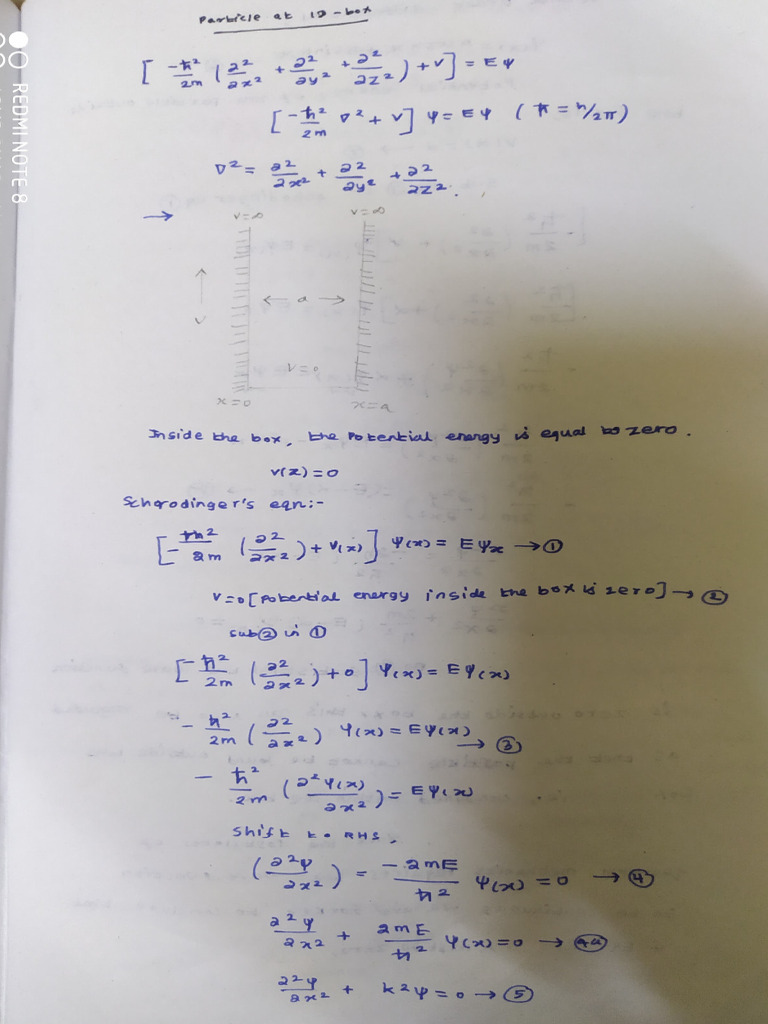 Particle at 1D-box
[ -ħ²/2m (∂²/∂x² + ∂²/∂y² + ∂²/∂z²) + v ] = Eψ
[ -ħ²/2m ∇² + v ] ψ = Eψ (ħ = h/2π)
∇² = ∂²/∂x² + ∂²/∂y² + ∂²/∂z².
→ v=∞ v=∞
← a →
v
v=0
x=0 x=a
Inside the box, the Potential energy is equal to zero.
v(x) = 0
Schorodinger's eqn:-
[ -ħ²/2m (∂²/∂x²) + v(x) ] ψ(x) = Eψx → ①
v=0 [Potential energy inside the box is zero] → ②
sub ② in ①
[ -ħ²/2m (∂²/∂x²) + 0 ] ψ(x) = Eψ(x)
- ħ²/2m (∂²/∂x²) ψ(x) = Eψ(x) → ③
- ħ²/2m (∂²ψ(x)/∂x²) = Eψ(x)
Shift to RHS,
(∂²ψ/∂x²) = -2mE/ħ² ψ(x) = 0 → ④
∂²ψ/∂x² + 2mE/ħ² ψ(x) = 0 → 4a
∂²ψ/∂x² + k²ψ = 0 → ⑤
REDMI NOTE 8